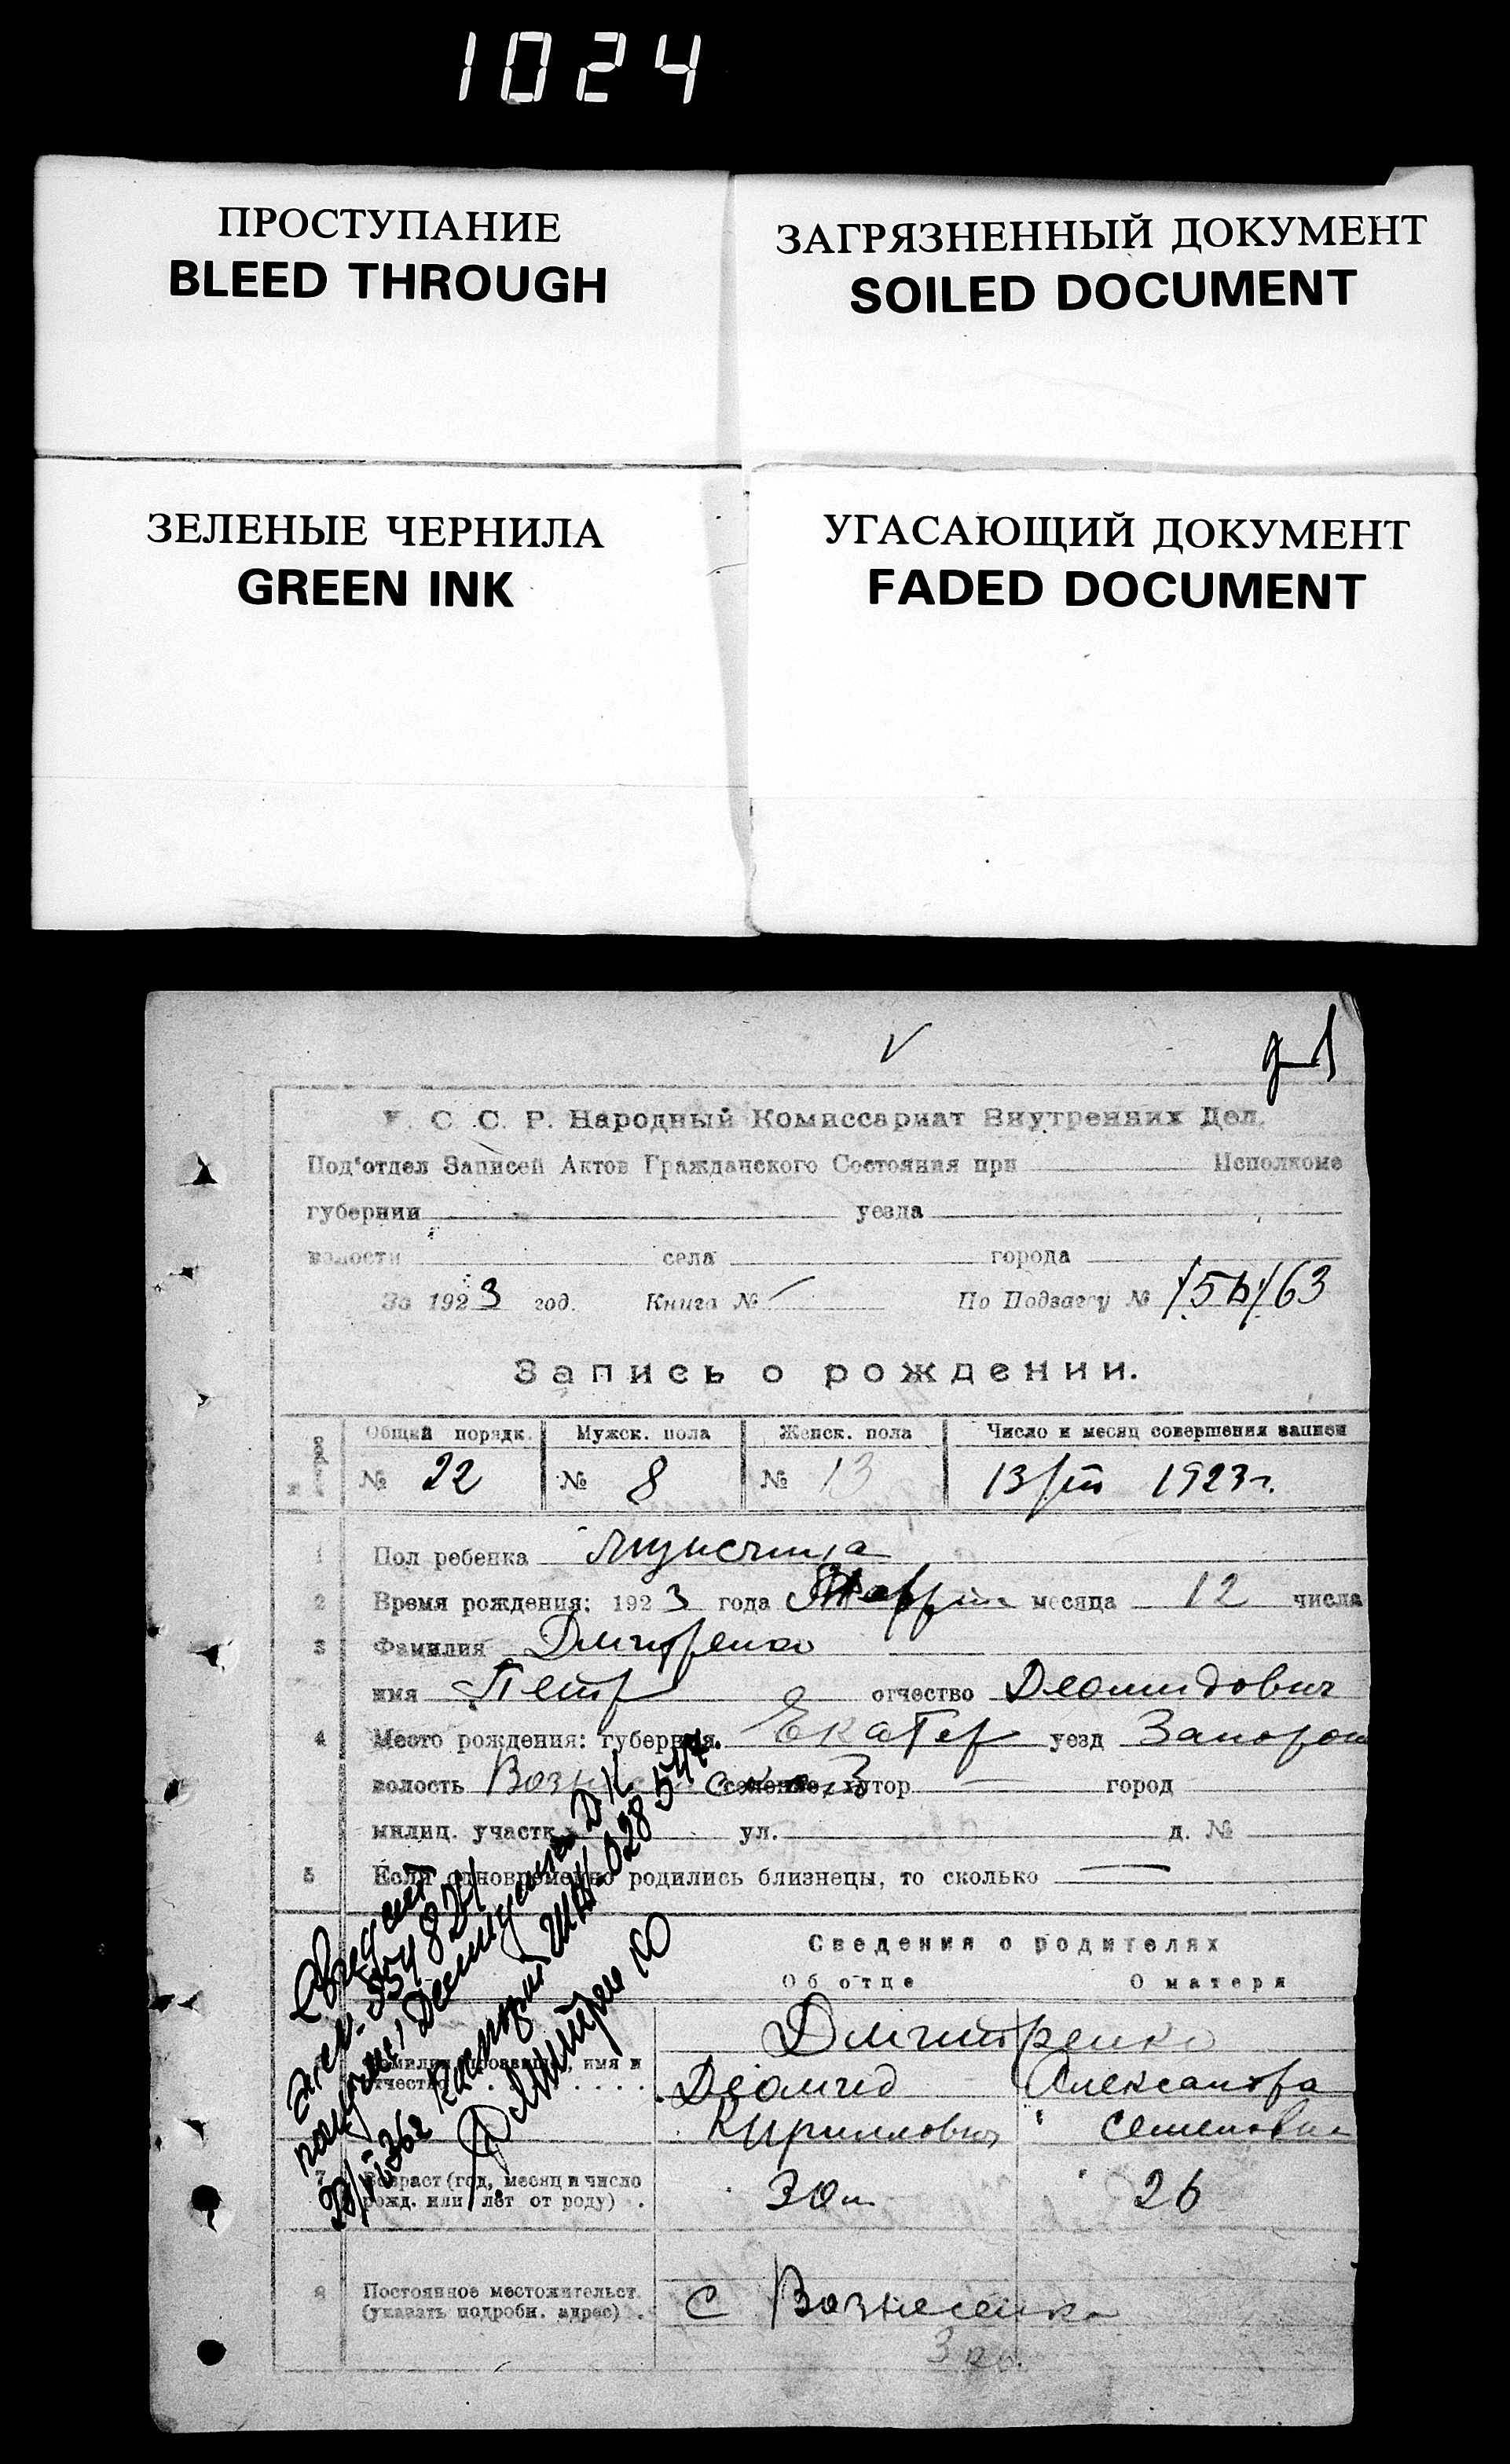 1024
ПРОСТУПАНИЕ
BLEED THROUGH
ЗАГРЯЗНЕННЫЙ ДОКУМЕНТ
SOILED DOCUMENT
ЗЕЛЕНЫЕ ЧЕРНИЛА
GREEN INK
УГАСАЮЩИЙ ДОКУМЕНТ
FADED DOCUMENT
У. С. С. Р. Народный Комиссариат Внутренних Дел.
Под'отдел Записей Актов Гражданского Состояния при Исполкоме
губернии уезда
волости села города
За 1923 год. Книга № По Подзагсу № 163
Запись о рождении.
Общий порядк. Мужск. пола Женск. пола Число и месяц совершения записи
№ 22 № 8 № 13 13/III 1923 г.
1 Пол ребенка мужчина
2 Время рождения: 1923 года месяца 12 числа
3 Фамилия Дмитренко
имя Петр отчество Деомидович
4 Место рождения: губерния Екатер уезд Запорож
волость селение, хутор город
милиц. участк. ул. д. №
5 Если одновременно родились близнецы, то сколько
Сведения о родителях
Об отце О матери
Дмитренко
Фамилия, прозвище, имя и отчество
Деомид Александра
Кирилловичъ Семеновна
7 Возраст (год, месяц и число рожд. или лет от роду) 30 26
8 Постоянное местожительст. (указать подробн. адрес)
с Вознесенка